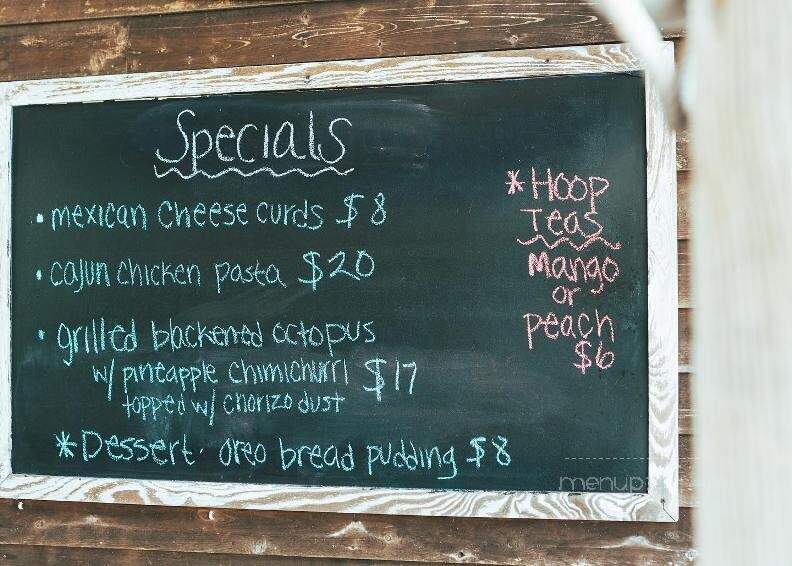 Specials
• mexican cheese curds $8
• cajun chicken pasta $20
• grilled blackened octopus
w/ pineapple chimichurri $17
topped w/ chorizo dust
*Dessert. oreo bread pudding $8
*Hoop
Teas
Mango
or
peach
$6
menup